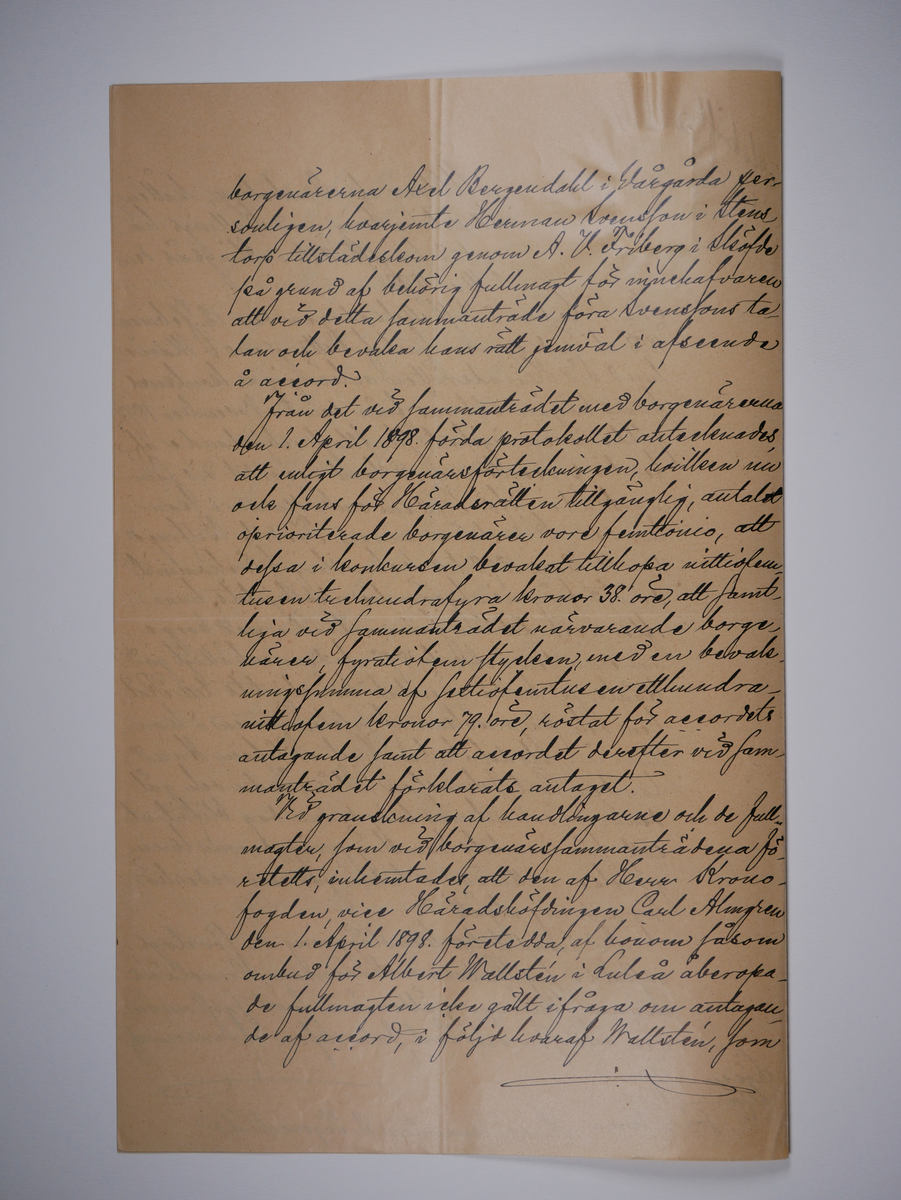 borgenärerna Axel Bergendahl i Vårgårda per-
sonligen, hvarjemte Herman Svensson i Stens-
torp tillstädeskom genom A. V. Friberg i Sköfde
på grund af behörig fullmagt för innehafvaren
att vid detta sammanträde föra Svenssons ta-
lan och bevaka hans rätt jemväl i afseende
å accord.
Från det vid sammanträdet med borgenärerna
den 1. April 1898. förda protokollet antecknades,
att enligt borgenärsförteckningen, hvilken nu
ock fans för Häradsrätten tillgänglig, antalet
oprioriterade borgenärer vore femttionio, att
dessa i konkursen bevakat tillhopa nittiofem-
tusen trehundrafyra kronor 38. öre, att samt-
liga vid sammanträdet närvarande borge-
närer, fyratiofem stycken, med en bevak-
ningssumma af sextiofemtusenetthundra-
nittiofem kronor 79. öre, röstat för accordets
antagande samt att accordet derefter vid sam-
manträdet förklarats antaget.
Vid granskning af handlingarne och de full-
magter, som vid borgenärssammanträdena fö-
retetts, inhemtades, att den af Herr Krono-
fogden, vice Häradshöfdingen Carl Almgren
den 1. April 1898. företedda, af honom såsom
ombud för Albert Wallstén i Luleå åberopa-
de fullmagten icke gält ifråga om antagan-
de af accord, i följd hvaraf Wallstén, som